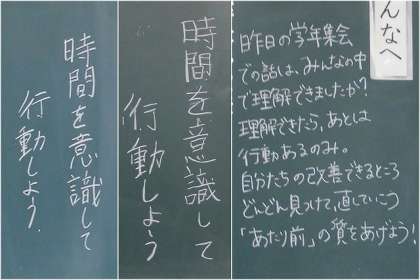 時間を意識して
行動しよう.
時間を意識して
行動しよう
んなへ
昨日の学年集会
での話は、みんなの中
で理解できましたか?
理解できたら、あとは
行動あるのみ。
自分たちの改善できるところ
どんどん見つけて、直していこう
「あたり前」の質をあげよう!